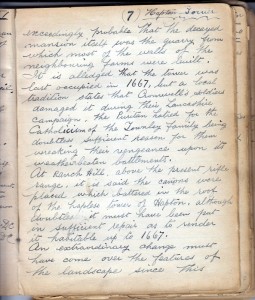 7 Hapton Tower
exceedingly probable that the decayed
mansion itself was the quarry from
which most of the walls of the
neighbouring farms were built.
It is alledged that the tower was
last occupied in 1667, but a local
tradition states that Cromwell's soldiers
damaged it during their Lancashire
campaign, the Puritan hatred for the
Catholicism of the Towneley family being
doubtless sufficient reason for them
wreaking their vengeance upon its
weatherbeaten battlements.
At Ranch Hill, above the present rifle
range, it is said the cannons were
placed which battered in the roof
of the hapless tower of Hapton, although
doubtless it must have been put
in sufficient repair as to render
it habitable up to 1667.
An extraordinary change must
have come over the features of
the landscape since this